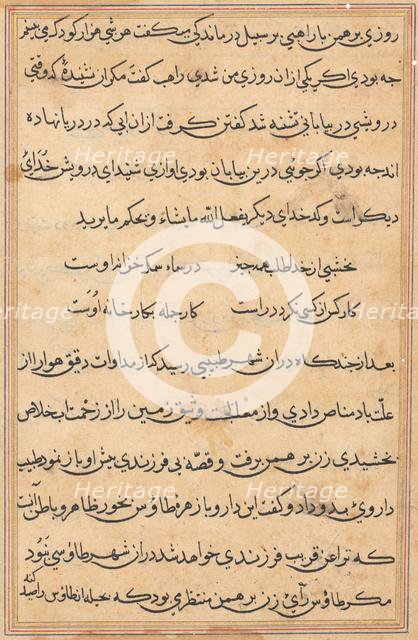 روزی برهمن با راهبی بر سبیل درماندکی میکفت هر شبی هزار کودک می بینم
جه بودی اکر یکی از ان روزی من شدی راهب کفت مکر از نشنیدۀ که وقتی
درویشی در بیابانی تشنه شد کفتن کرفت از ان ابی که در دریا نهاده
اند جه بودی اکر جوئی درین بیابان بودی اوازی شنید ای درویش خدای
دیکر است و کدخدای دیکر یفعل الله ما یشاء و یحکم ما یرید
نخشبی از خدا طلب همه چیز در سماء و سمک خزانه اوست
کار کر از کسی نکردد راست کار جمله بکارخانه اوست
بعد از چندکاه در ان شهر طبیبی رسید که از مداوات دقیق هوا را از
علت باد مناص دادی و از معالجت وثیق زمین را از زحمت تب خلاص
بخشیدی زن برهمن برفت و قصه بی فرزندی پیش او باز نمود طبیب
داروی بدو داد و کفت این دارو با زهره طاؤس بخور ظاهر و باطن آنست
که ترا عن قریب فرزندی خواهد شد در ان شهر طاؤسی نبود
مکر طاؤس رای زن برهمن منتظری بود که بحیله ان طاؤس را صید کند
Heritage Heritage
Heritage Heritage Heritage
Heritage Heritage